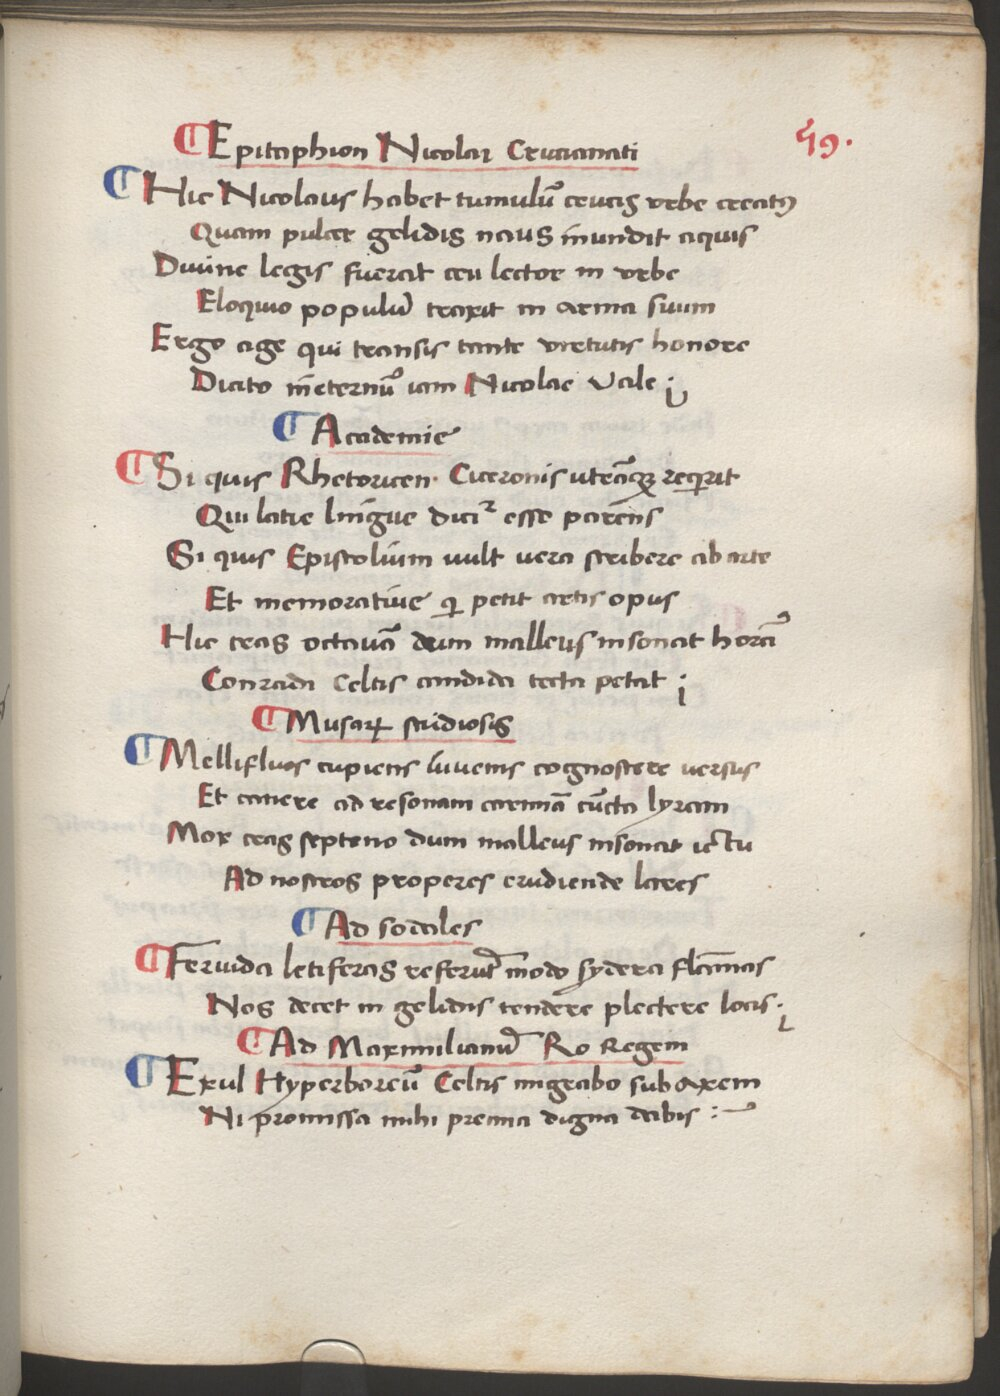 59.
Epitaphion Nicolai Crucianati
Hic Nicolaus habet tumulū crucis vrbe creatꝰ
Quam pulcer gelidis naus inundit aquis
Diuine legis fuerat ceu lector in vrbe
Eloquio populū traxit in arma suum
Ergo age qui transis tante virtutis honore
Dicito ineternū iam Nicolae Vale ;
Academie
Si quis Rhetoricen · Ciceronis utrāqꝫ reqͥrit
Qui latie lingue dicĩ esse parens
Si quis Epistolium uult vera scribere ab arte
Et memoratiue qͥ petit artis opus
Hic cras octauā dum malleus insonat horā
Conradi Celtis candida tecta petat ;
Musaꝝ studiosis
Mellifluos cupiens iuuenis cognoscere versus
Et canere ad resonam carminā cūcta lyram
Mox cras septeno dum malleus insonat ictu
Ad nostros properes erudiende lares
Ad sodales
Feruida letiferas referūt modo sydera flāmas
Nos decet in gelidis tendere plectere locis ;
Ad Maximilianū Ro Regem
Exul Hyperboreū Celtis migrabo sub axem
Ni promissa mihi premia digna dabis :~